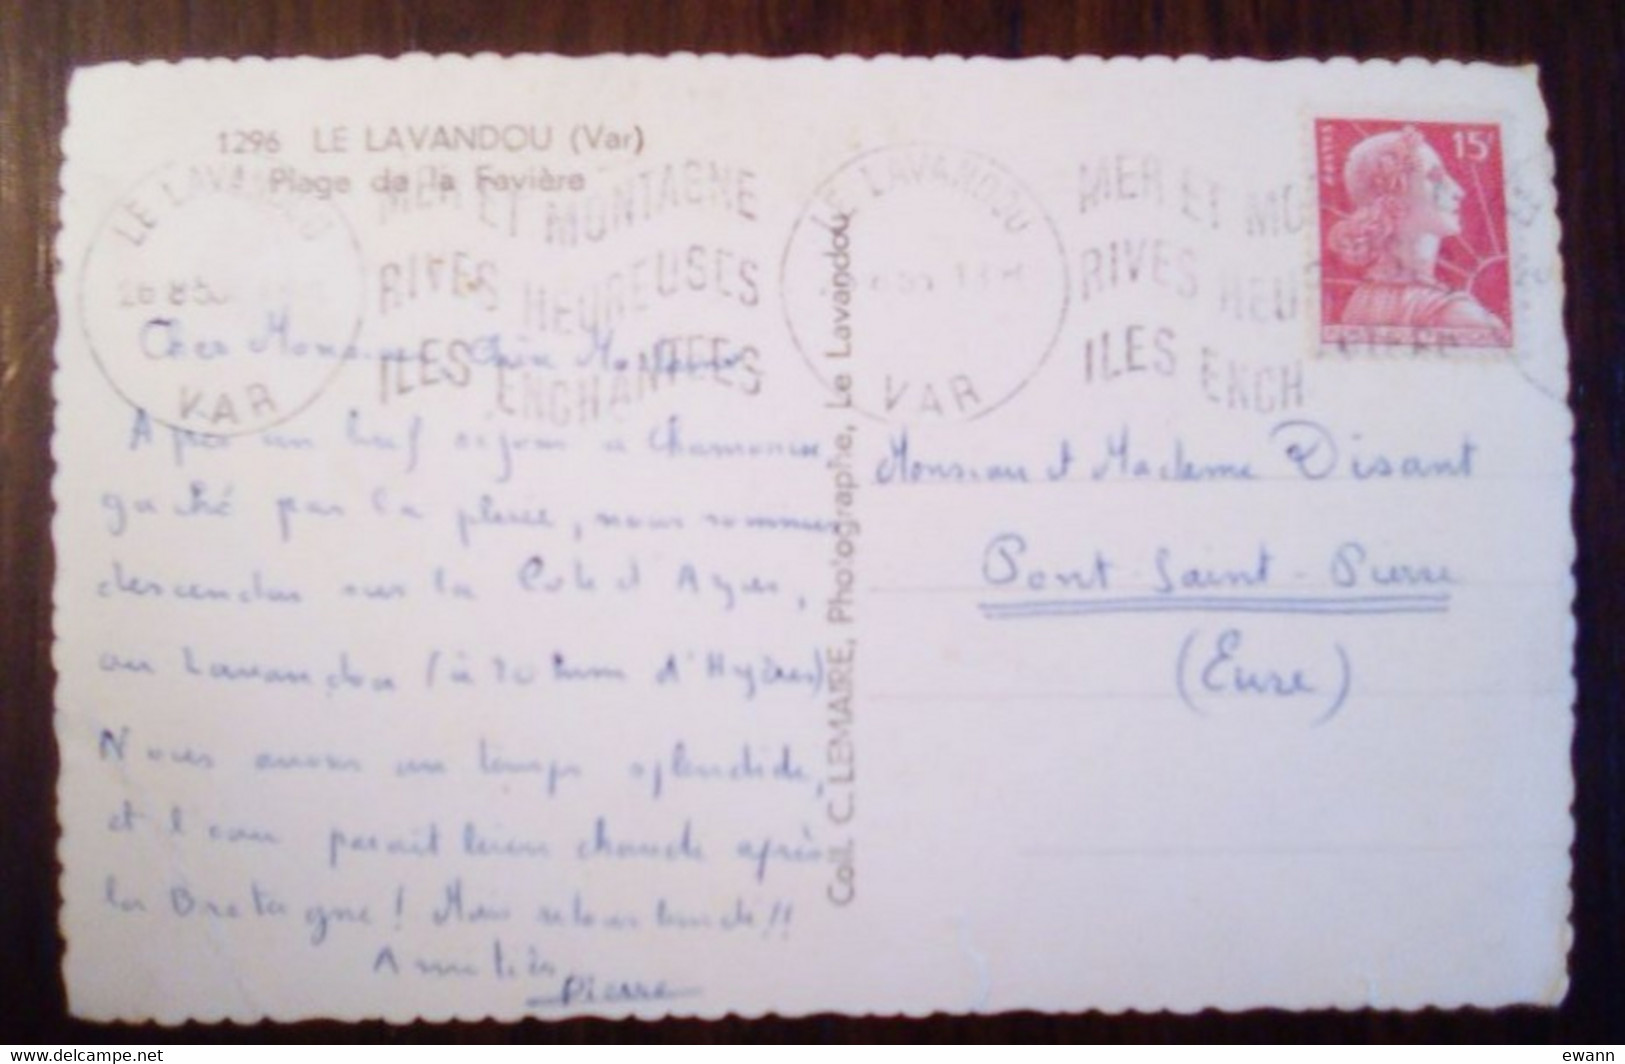 1296 LE LAVANDOU (Var)
Plage de la Favière
LE LAVANDOU
VAR
MER ET MONTAGNE
RIVES HEUREUSES
ILES ENCHANTEES
LE LAVANDOU
VAR
MER ET MO
RIVES HEU
ILES ENCH
15F
POSTES
Cher Monsieur Chère Madame
Après un bref séjour à Chamonix
gaché par la pluie, nous sommes
descendus sur la Côte d'Azur,
au Lavandou (à 20 kms d'Hyères)
Nous avons un temps splendide,
et l'eau parait bien chaude après
la Bretagne! Mais retour lundi!!
Amitiés
Pierre
Coll. C. LEMAIRE, Photographe, Le Lavandou
Monsieur et Madame Disant
Pont-Saint-Pierre
(Eure)
https://www.delcampe.net
ewann